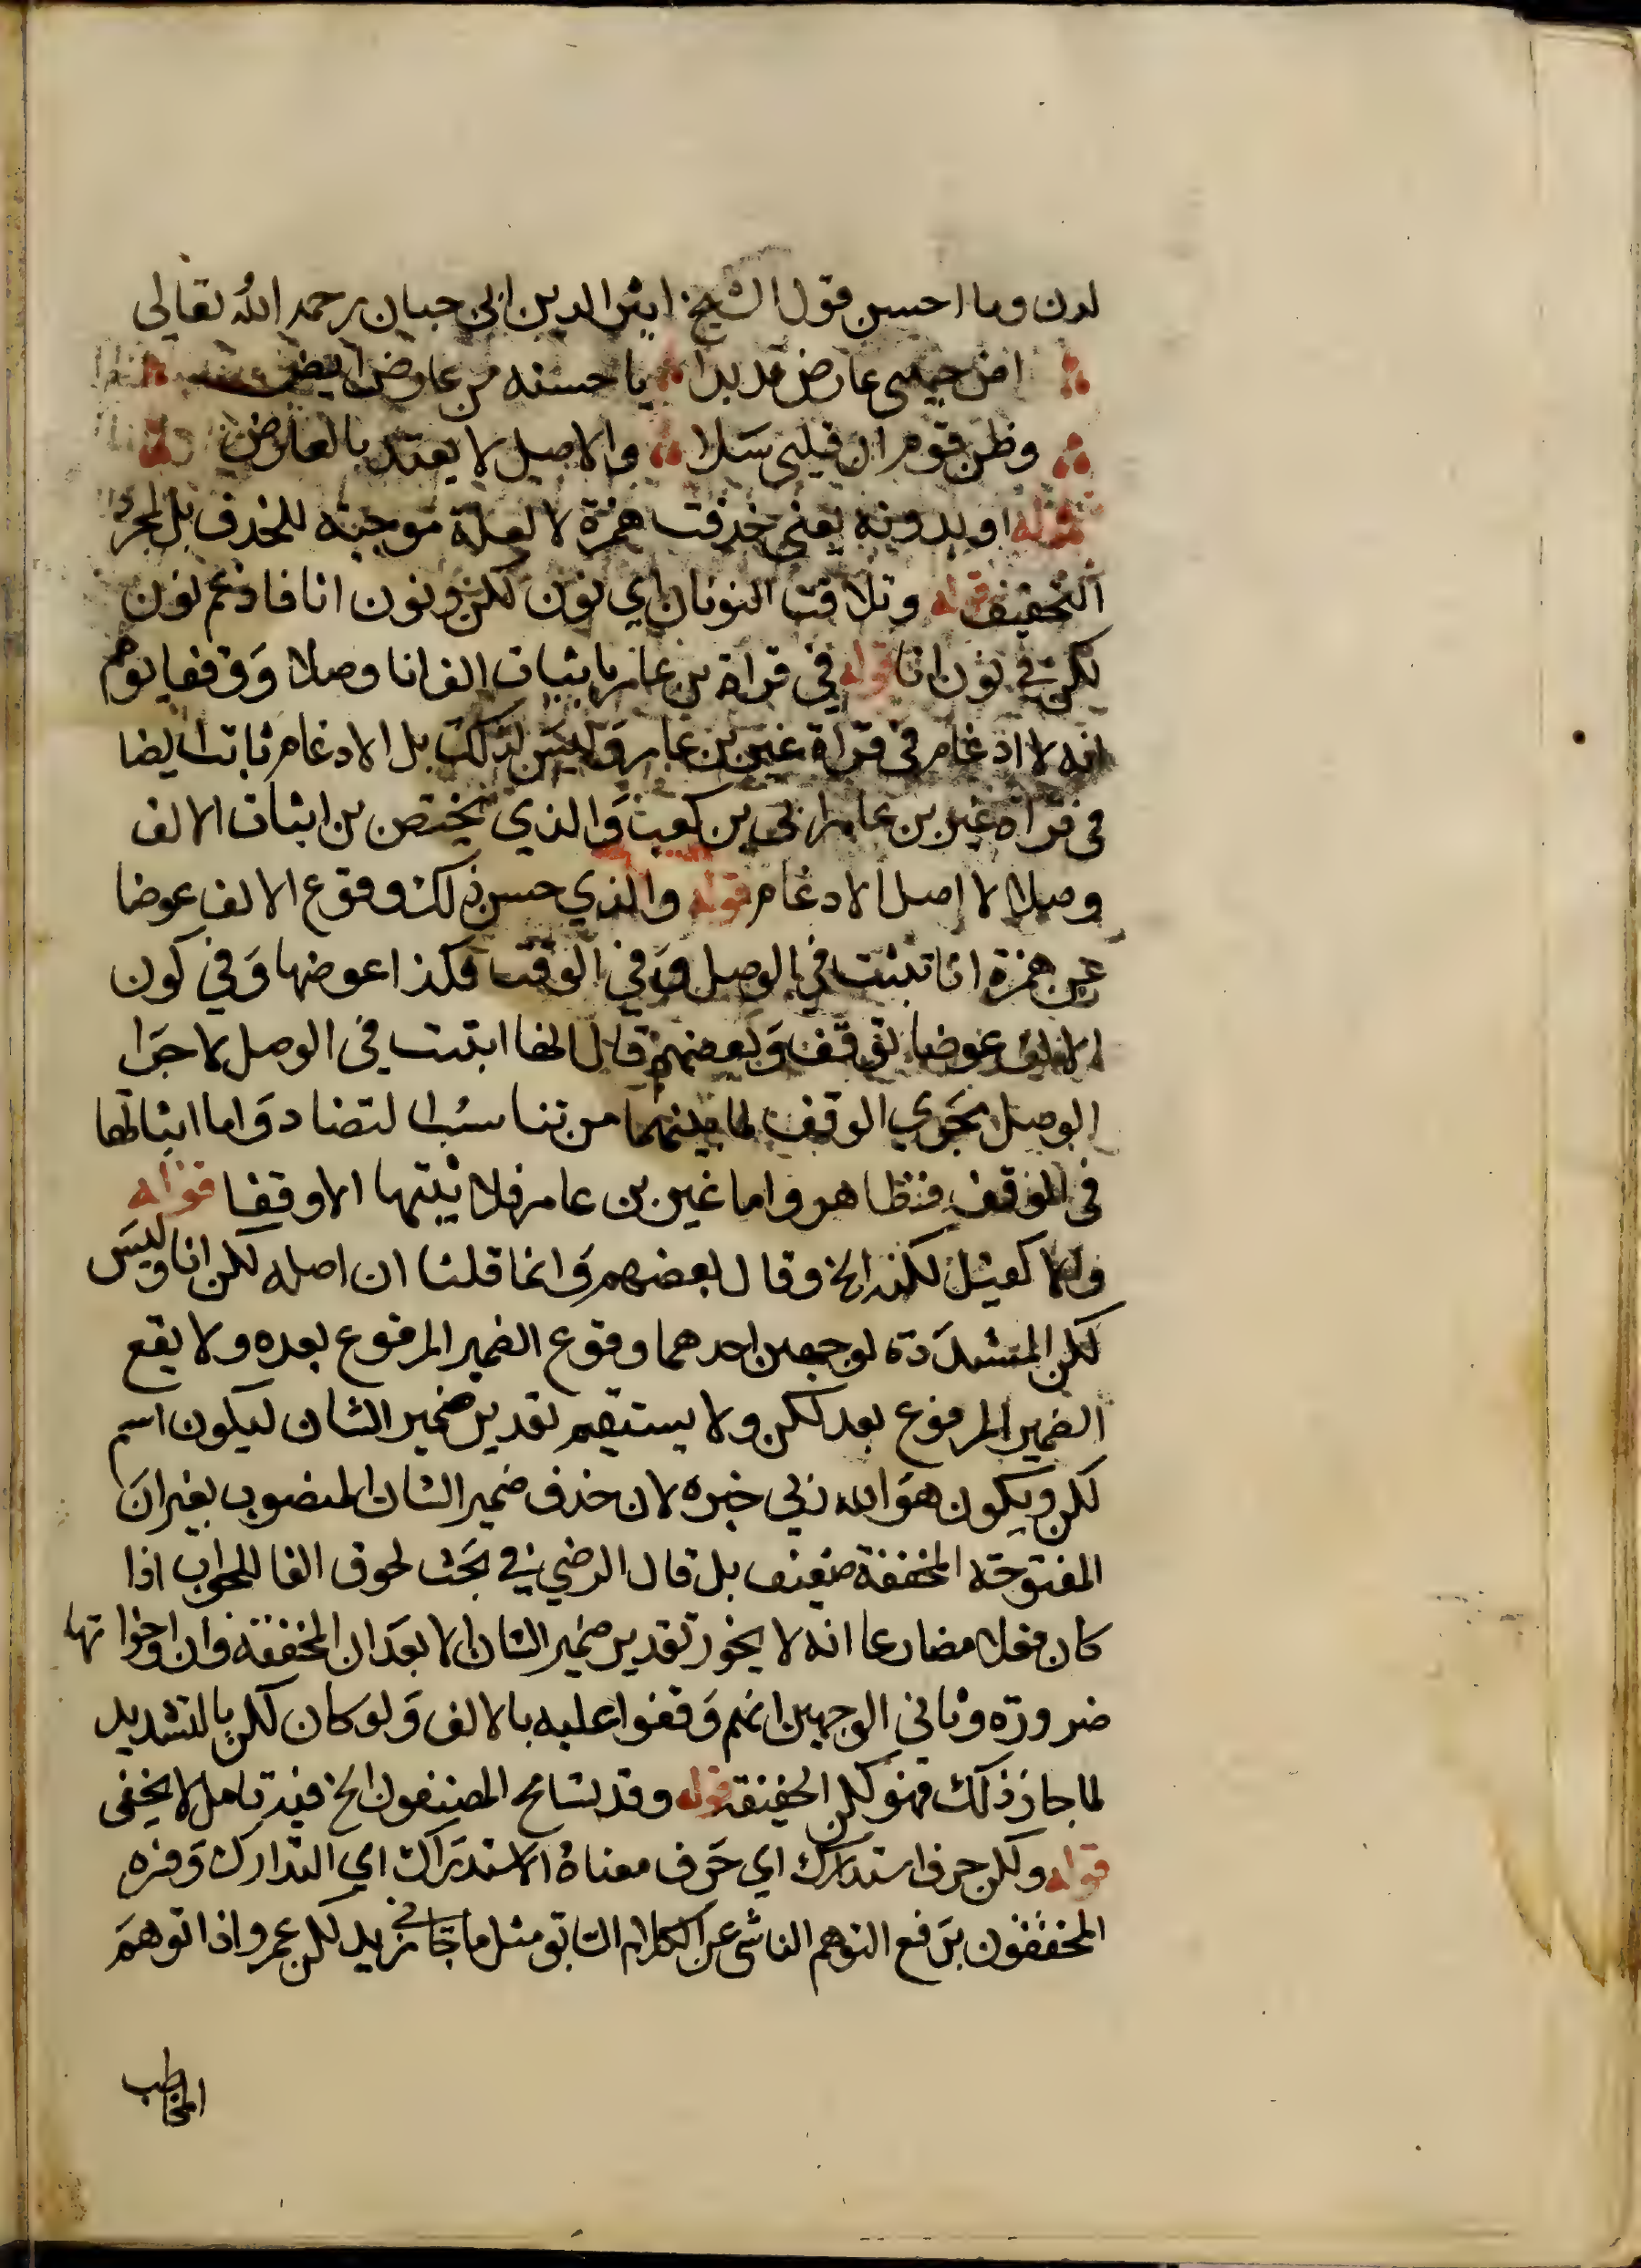 لدن وما احسن قول الشيخ اثير الدين ابي حيان رحمه الله تعالى
امن حبيبي عارض قد بدا يا حسنه من عارض رايض
وظن قوم ان قلبي سلا والاصل لا يعتد بالعارض
قوله او بدونه يعني حذفت همزة لا لعلة موجبة للحذف بل لمجرد
التخفيف قوله وتلاقت النونان اي نون لكن ونون انا فادغم نون
لكن في نون انا قوله في قراة بن عامر باثبات الف انا وصلا وَوقفا يوهم
انه لا ادغام في قراة غير بن عامر وَليس لذلك بل الادغام ثابت ايضا
في قراة غير بن عامر ابي بن كعب وَالذي يختص بن اثبات الالف
وصلا لا اصل الادغام قوله والذي حسن ذلك وقوع الالف عوضا
عن همزة انا تثبت في الوصل وَفي الوقف فكذا عوضها وَفي كون
الالف عوضا توقف وَبعضهم قال انها اثبتت في الوصل لاجرا
الوصل مجرَي الوقف لما بينهما من تناسُب التضاد وَاما اثباتها
في الوقف فظاهر واما غير بن عامر فلا يثبتها الا وقفا قوله
ولا كقيل لكنه الخ وقال بعضهم وَانما قلنا ان اصله لكن انا وليسَ
لكن المشدَدة لوجهين احدهما وقوع الضمير المرفوع بعده ولا يقع
الضمير المرفوع بعد لكن ولا يستقيم تقدير ضمير الشان ليكون اسم
لكن ويكون هوَ الله ربي خبره لان حذف ضمير الشان المنصوب بغير انَ
المفتوحة المخففة ضعيف بل قال الرضي في بحَث لحوق الفا للجواب اذا
كان فعلا مضارعا انه لا يجوز تقدير ضمير الشان الا بعدَ ان المخففة وان واخواتها
ضرورة وثاني الوجهين انهم وَقفوا عليه بالالف وَلو كان لكن بالتشديد
لما جاز ذلك فهو لكن الخفيفة قوله وقد تسامح المصنفون الخ فيه تامل لا يخفى
قوله ولكن حرف استدراك اي حَرف معناهُ الاستدرَاك اي التدارك وَفسره
المحققون برَفع التوهم الناشي عن الكلام السابق مثل ما جَاني زيد لكن عمرو اذا توهمَ
المخاطب